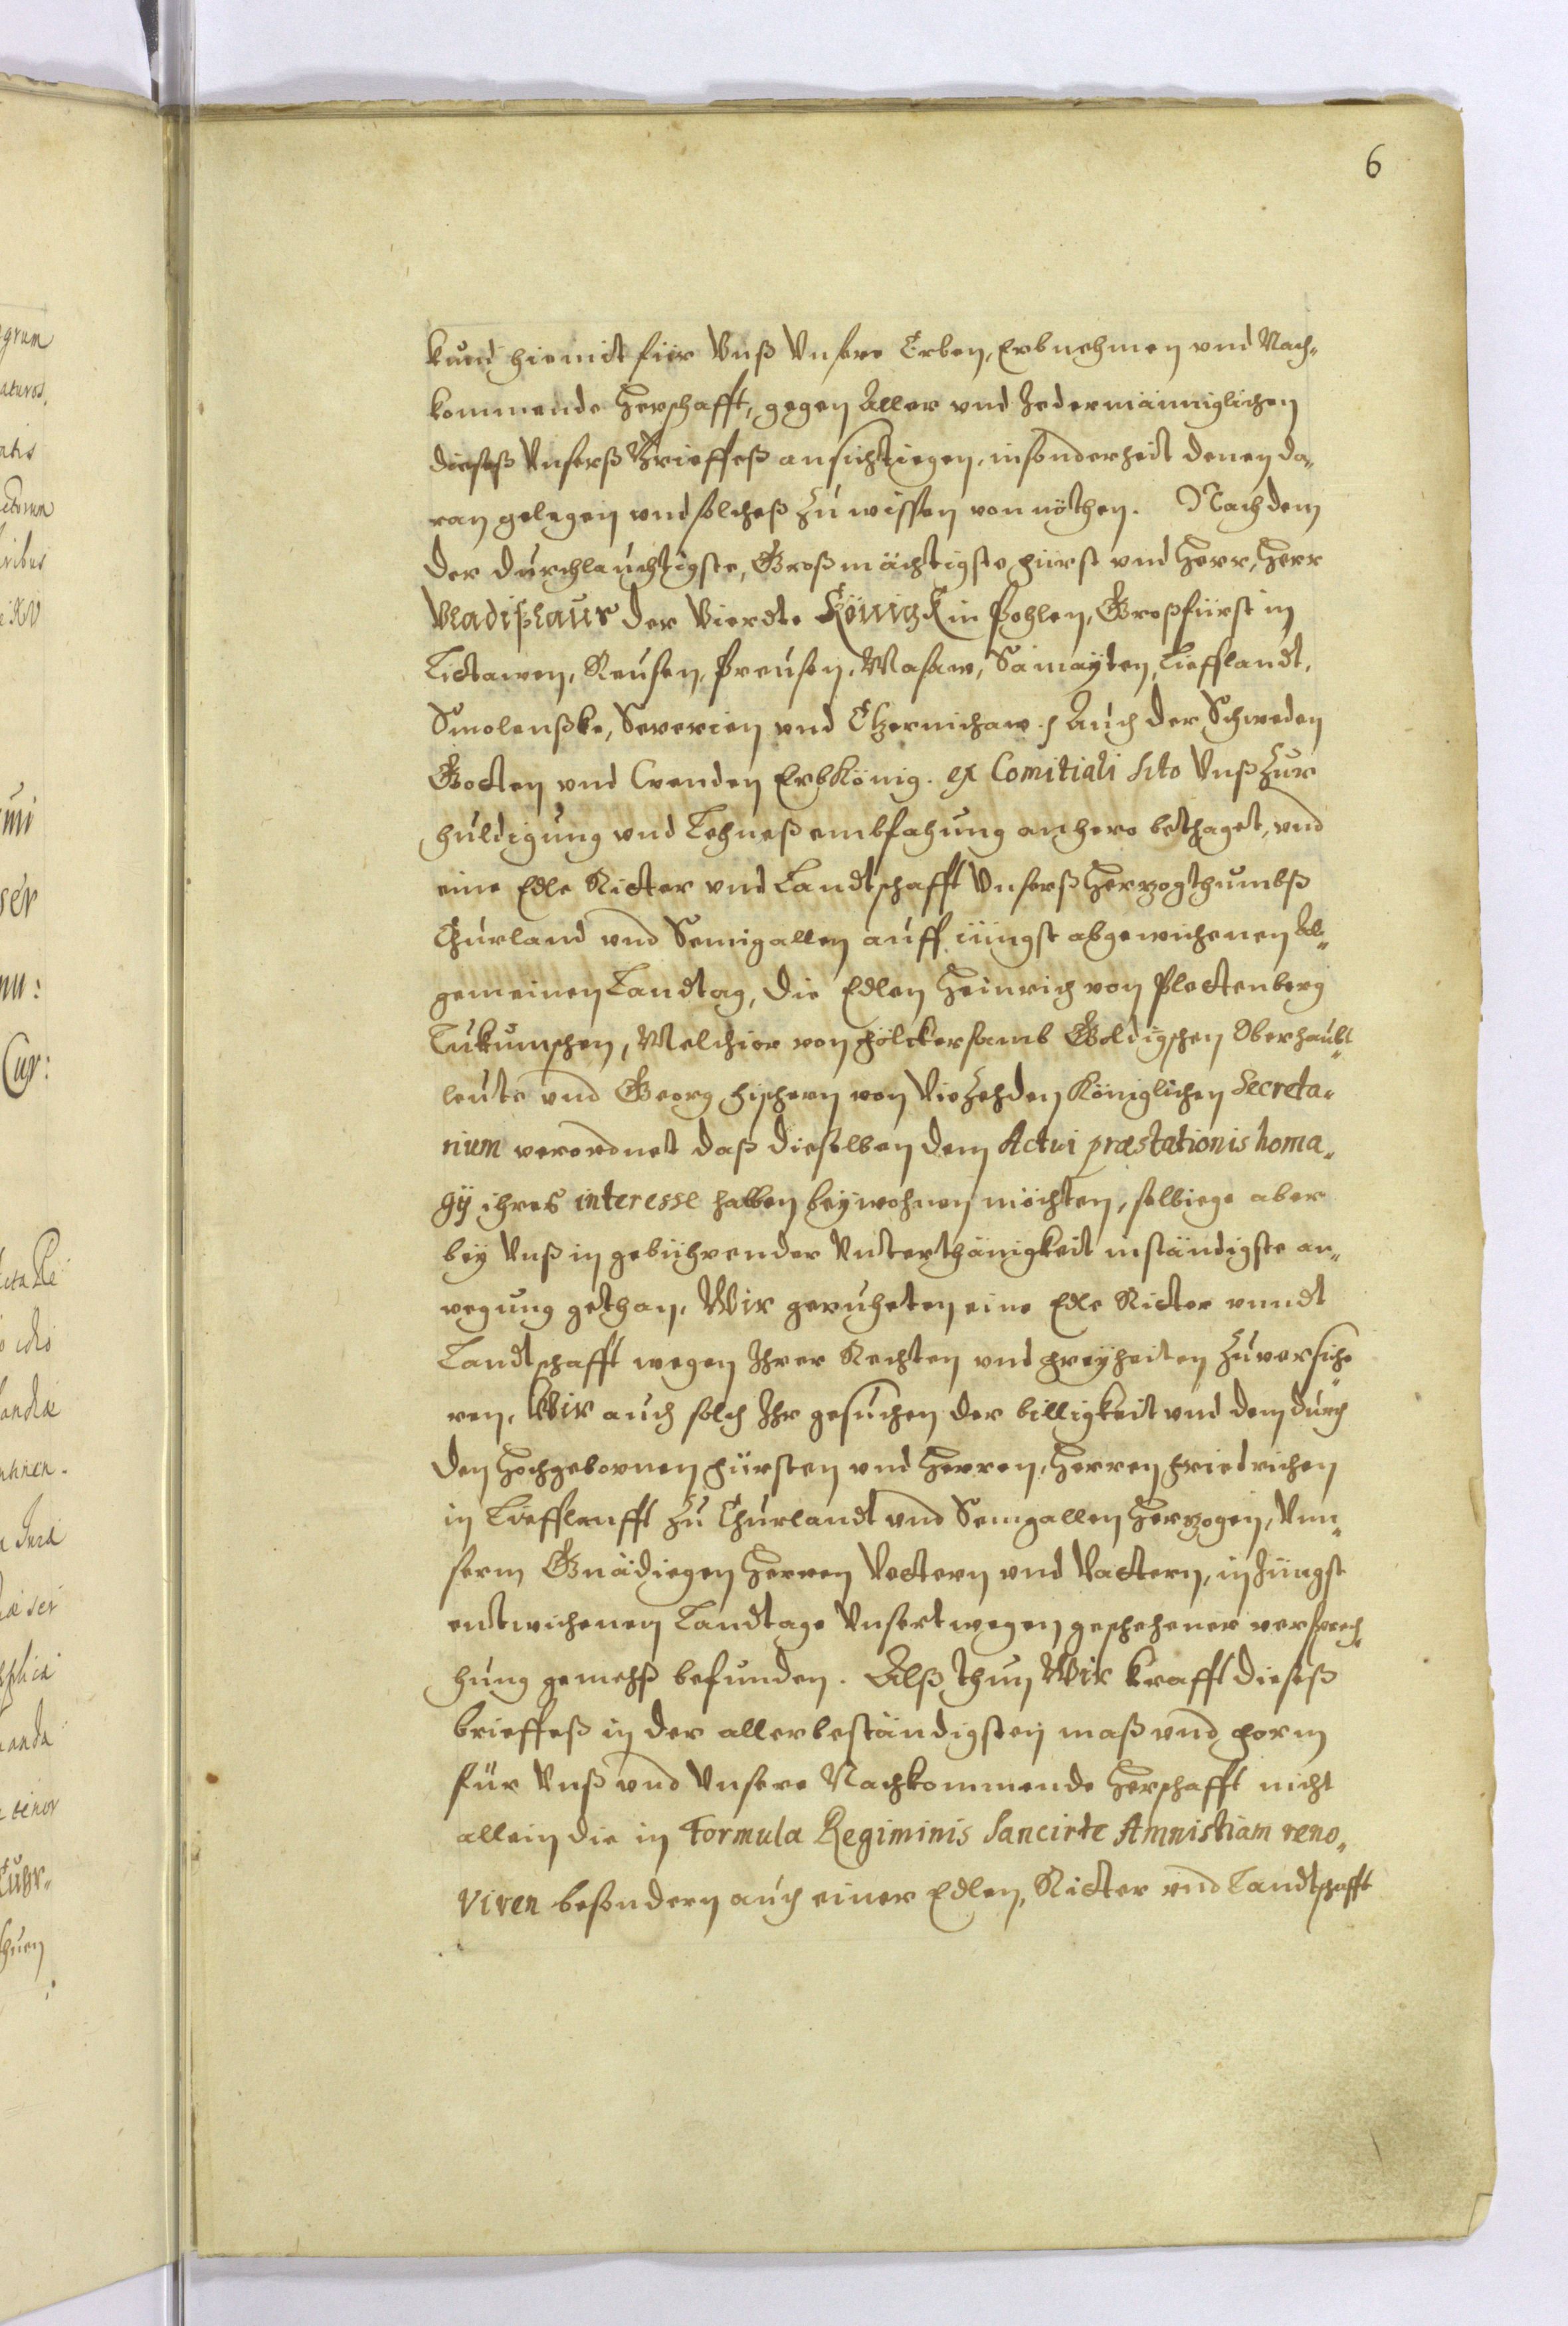 6
kund hiemit für Vnß Vnsere Erben, Erbnehmen vnd Nach¬
kommende Herschafft, gegen Aller vnd Jedermänniglichen
dieseß Vnserß Brieffeß ansichtiegen, insonderheit denen da¬
ran gelegen vnd solcheß zu wissen von nöthen. Nachdem
der Durchlauchtigste, Großmächtigste Fürst vnd Herr, Herr
Vladißlaus der Vierdte König in Pohlen, Großfürst in
Littawen, Reusen, Preusen, Masaw, Samayten, Liefflandt,
Smolenßke, Severien vnd Tzernichaw. Auch der Schweden
Gotten vnd Wenden Erb König. ex Comitiali scito Vnß zur
huldigung vnd Lehneß embfahung anhero bethaget, vnd
eine Edle Ritter vnd Landtschafft Vnserß Herzogthumbß
Churland vnd Semigallen auff iüngst abgewichenen Al¬
gemeinen Landtag, die Edlen Heinrich von Plettenberg
Tukumschen, Melchior von Fölckersamb Goldigschen Oberhaubt¬
leute vnd Georg Fischern von Viezehden Königlichen Secreta¬
rium verordnet daß dieselben dem Actui præstationis homa¬
gÿ ihres interesse halben beywohnen möchten, selbiege aber
bey Vnß in gebührender Vnterthänigkeit inständigste an¬
regung gethan, Wir geruheten eine Edle Ritter vnndt
Landtschafft wegen Ihrer Rechten vnd Freyheiten zu versiche¬
ren, Wir auch solch Ihr gesuchen der billigkeit vnd dem durch
den Hochgebornen Fürsten vnd Herren, Herren Friedrichen
in Liefflanfft zu Churlandt vnd Semgallen Herzogen, Vnn¬
serm Gnädiegen Herren Vettern vnd Vattern, in Jüngst
entwichenem Landtage Vnsertwegen geschehener versprech¬
hung gemeß befunden. Alß thun Wir krafft dieseß
brieffeß in der allerbeständigsten maß vnd form
für Vnß vnd Vnsere Nachkommende Herschafft nicht
allein die in Formula Regiminis Sancirte Amnistiam reno¬
viren besondern auch einer Edlen, Ritter vnd Landtschafft